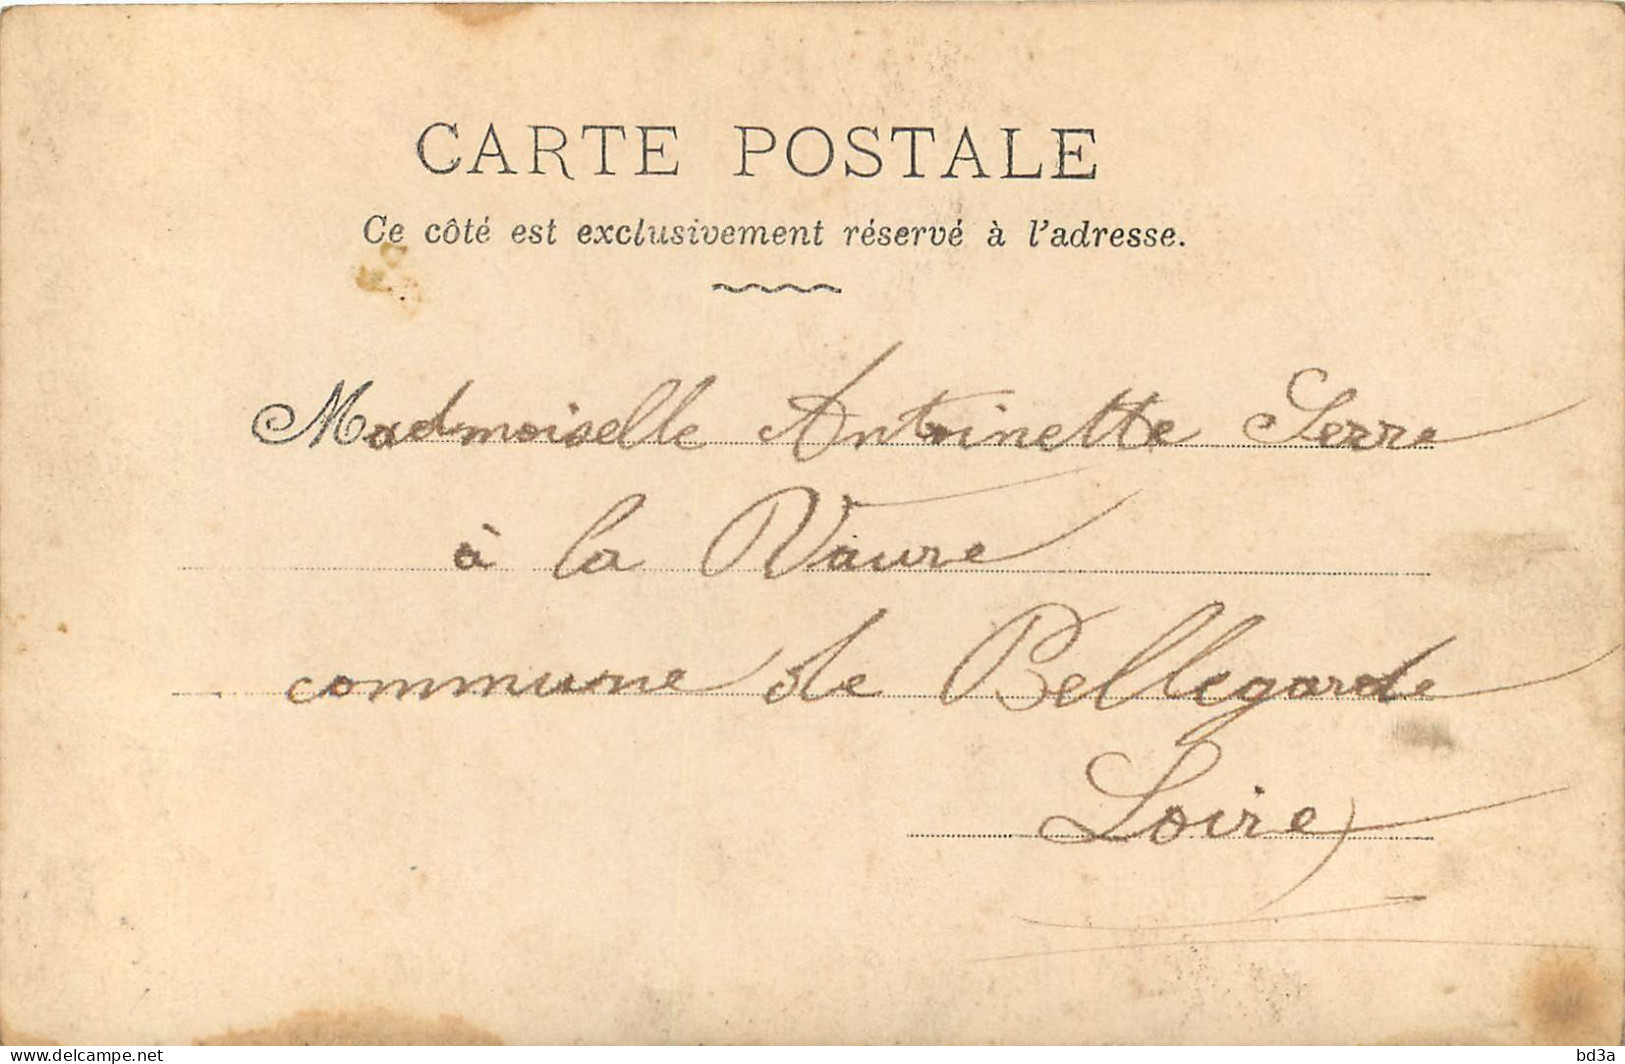 CARTE POSTALE
Ce côté est exclusivement réservé à l'adresse.
Madmoiselle Antoinette Serre
à la Vaure
commune de Bellegarde
Loire
www.delcampe.net
bd3a